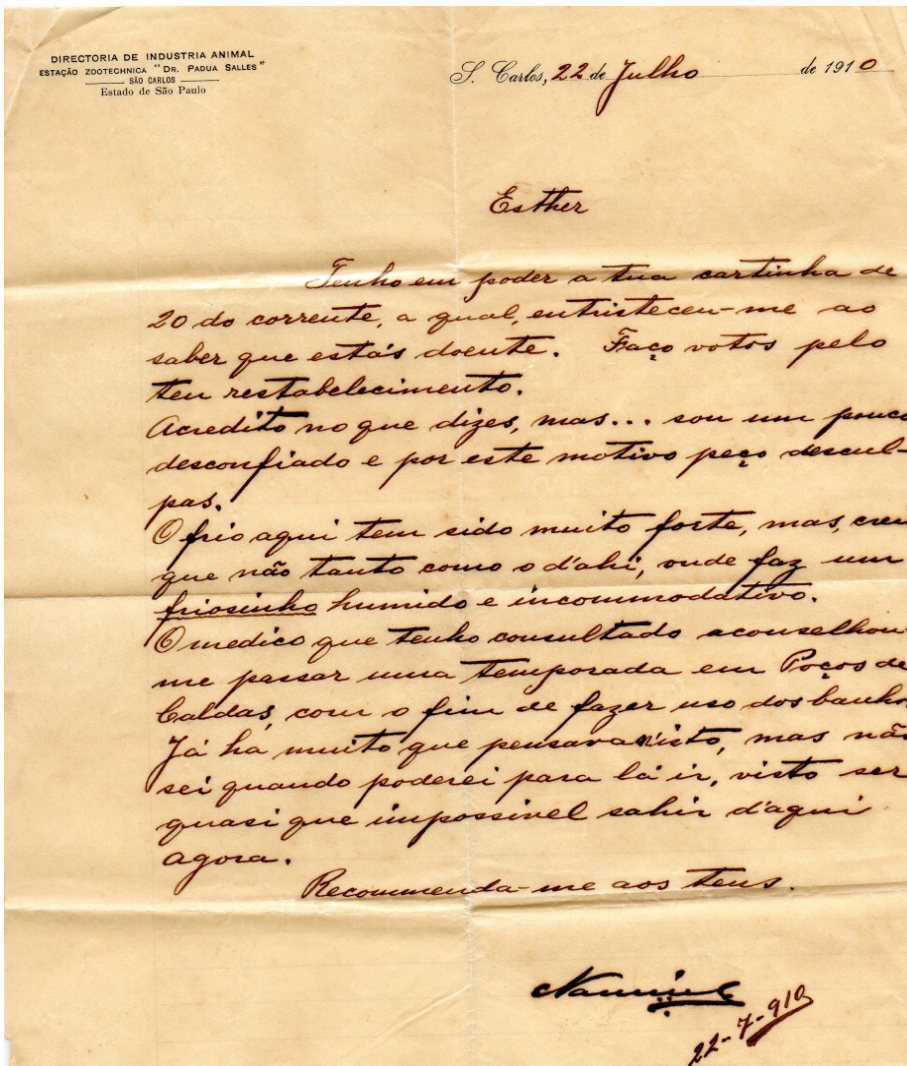 DIRECTORIA DE INDUSTRIA ANIMAL
ESTAÇÃO ZOOTECHNICA "DR. PADUA SALLES"
SÃO CARLOS
Estado de São Paulo
S. Carlos, 22 de Julho de 1910
Esther
Tenho em poder a tua cartinha de
20 do corrente, a qual, entristeceu-me ao
saber que estás doente. Faço votos pelo
teu restabelecimento.
Acredito no que dizes, mas... sou um pouco
desconfiado e por este motivo peço descul-
pas.
O frio aqui tem sido muito forte, mas, creu
que não tanto como o d'ahi, onde faz um
friosinho humido e incommodativo.
O medico que tenho consultado aconselhou-
me passar uma temporada em Poços de
Caldas, com o fim de fazer uso dos banhos.
Já ha muito que pensava n'isto, mas não
sei quando poderei para lá ir, visto ser
quasi que impossivel sahir d'aqui
agora.
Recommenda-me aos teus.
22-7-910